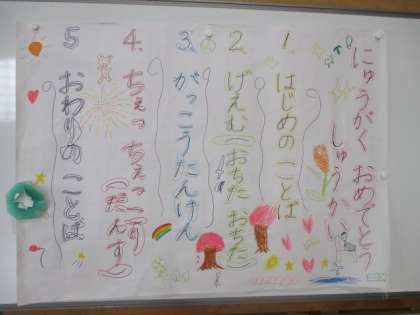 にゅうがく おめでとう
しゅうかい
1. はじめの ことば
2. げえむ(おちた おちた)
3. がっこうたんけん
4. ちぇっ ちぇっ
(だんす)
5 おわりの ことば